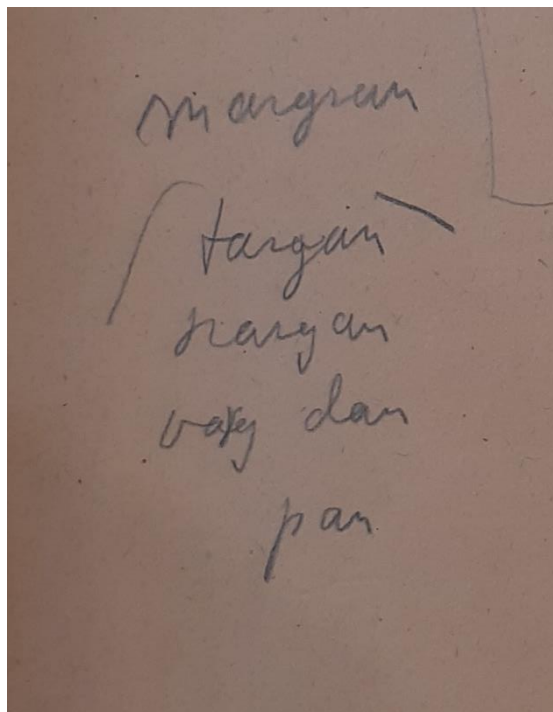 margran
targan
nargan
varg dan
pan